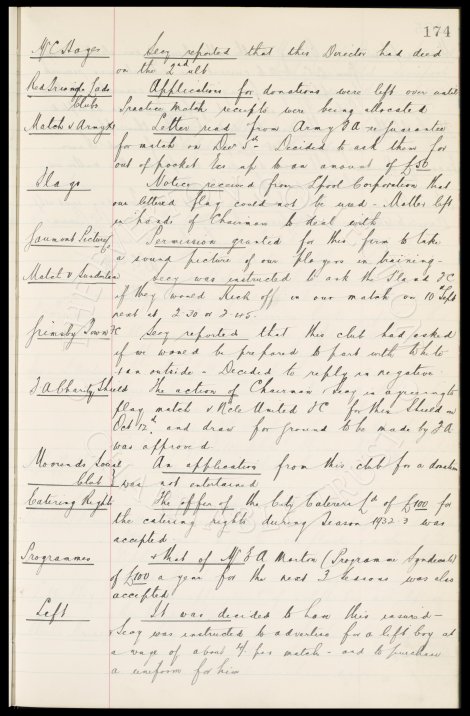 174
Mr C Hayes Secy reported that this Director had died
on the 2nd ult
Red Triangle Lads Applications for donations were left over until
Clubs Practice Match receipts were being allocated
Match v Army Letter read from Army FA re guarantee
for match on Decr 5th – Decided to ask them for
out of pocket exs up to an amount of £50
Flags Notice received from Lpool Corporation that
our lettered flag could not be used – Matter left
in hands of Chairman to deal with
Gaumont Pictures Permission granted for this firm to take
a sound picture of our players in training –
Match v Sunderland Secy was instructed to ask the Sland FC
if they would Kick off in our match on 10th Sept
next at 2-30 or 2-45.
Grimsby Town FC Secy reported that this club had asked
if we would be prepared to part with White
an outside – Decided to reply in negative
FA Charity Shield The action of Chairman & Secy in agreeing to
play match v Ncle United FC for this Shield on
Oct 12th and draw for ground to be made by FA
was approved.
Moorends Social An application from this club for a donation
Club was not entertained
Catering Rights The offer of the City Caterers Ld of £100 for
the catering rights during Season 1932-3 was
accepted
Programmes & that of Mr F A Morton (Programme Syndicate)
of £100 a year for the next 3 Seasons was also
accepted
Left It was decided to have this insured –
Secy was instructed to advertise for a lift boy at
a wage of about 4/ per match – and to purchase
a uniform for him